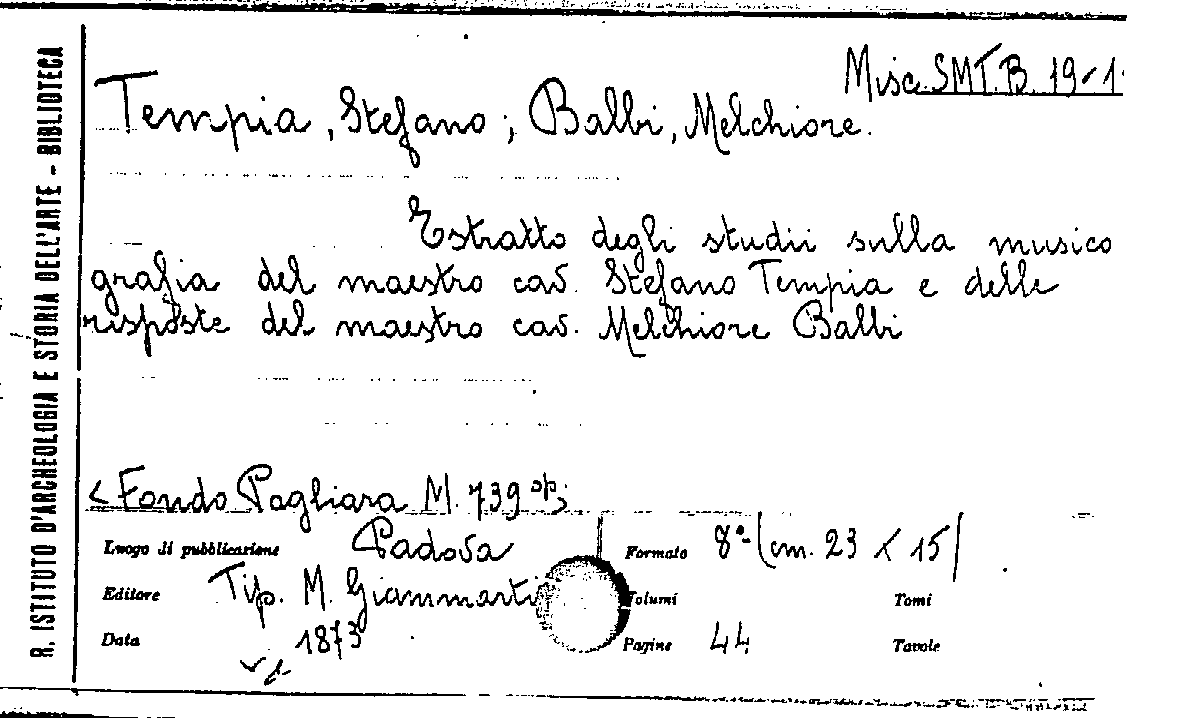 R. ISTITUTO D'ARCHEOLOGIA E STORIA DELL'ARTE - BIBLIOTECA
Misc. SMT. B. 19-1.
Tempia, Stefano; Balbi, Melchiore.
Estratto degli studii sulla musico
grafia del maestro cav. Stefano Tempia e delle
risposte del maestro cav. Melchiore Balbi
< Fondo Pagliara M. 739
Luogo di pubblicazione Padova Formato 8°-(cm. 23 x 15)
Editore Tip. M. Giammarti Volumi Tomi
Data 1873 Pagine 44 Tavole